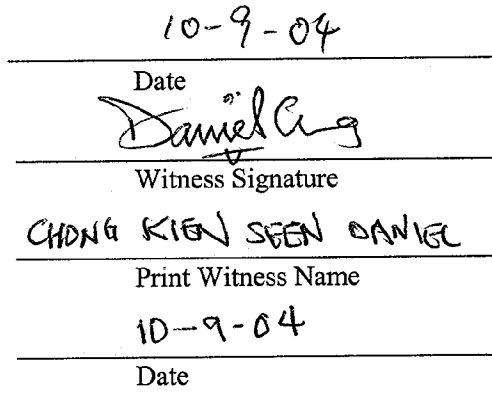 10-9-04
Date
Daniel
Witness Signature
CHONG KIEN SEEN DANIEL
Print Witness Name
10-9-04
Date